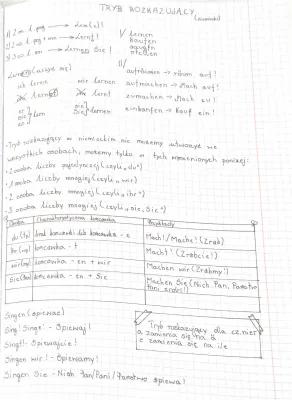 TRYB ROZKAZUJĄCY
1) 2 os l. poj
2) 2 os l. mn Lernt!
3) 3 os l. mn Lernen Sie!
V Lernen
kaufen
Lernen (uczyć się)
ich lerne wir lernen
er
sie
es
lernt
sie
Sie
lernen
aufräumen → räum auf!
aufmachen → Mach auf!
zumachen → Mach zu!
einkaufen → Kauf ein!
-Tryb rozkazujący w niemieckim nie możemy utworzyć we
wszystkich osobach, możemy tylko w tych wymienionych poniżej:
- 2 osoba liczby pojedynczej (czyli „du")
- 1 osoba liczby mnogiej (czyli „wir)
- 2 osoba liczby mnogiej (czyli „ihr")
- 3 osoba liczby mnogiej (czyli „sie, Sie")
Osoba Charakterystyczna końcówka Przykłady
du (ty) brak końcówki lub końcówka - e Mach! / Mache! (Zrób)
ihr (wy) końcówka - t Macht! (Zróbcie!)
wir (my) końcówka - en + wir Machen wir! (Zróbmy!)
Sie końcówka - en + Sie Machen Sie! (Niech Pan, Pani
zrobi!)
Singen (śpiewać)
Sing! Singe! - Śpiewaj!
Singt! - Śpiewajcie!
Singen wir! - Śpiewamy!
Singen Sie - Niech Pan/Pani/Państwo śpiewa!
Tryb rozkazujący dla
a zamienia się na ä
e zamienia się na i/ie